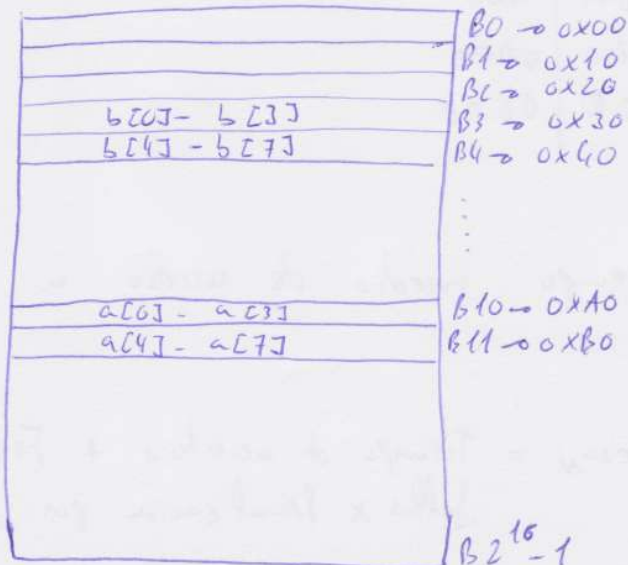 B0 → 0x00
B1 → 0x10
B2 → 0x20
b[0] - b[3] B3 → 0x30
b[4] - b[7] B4 → 0x40
a[0] - a[3] B10 → 0xA0
a[4] - a[7] B11 → 0xB0
B2^16-1